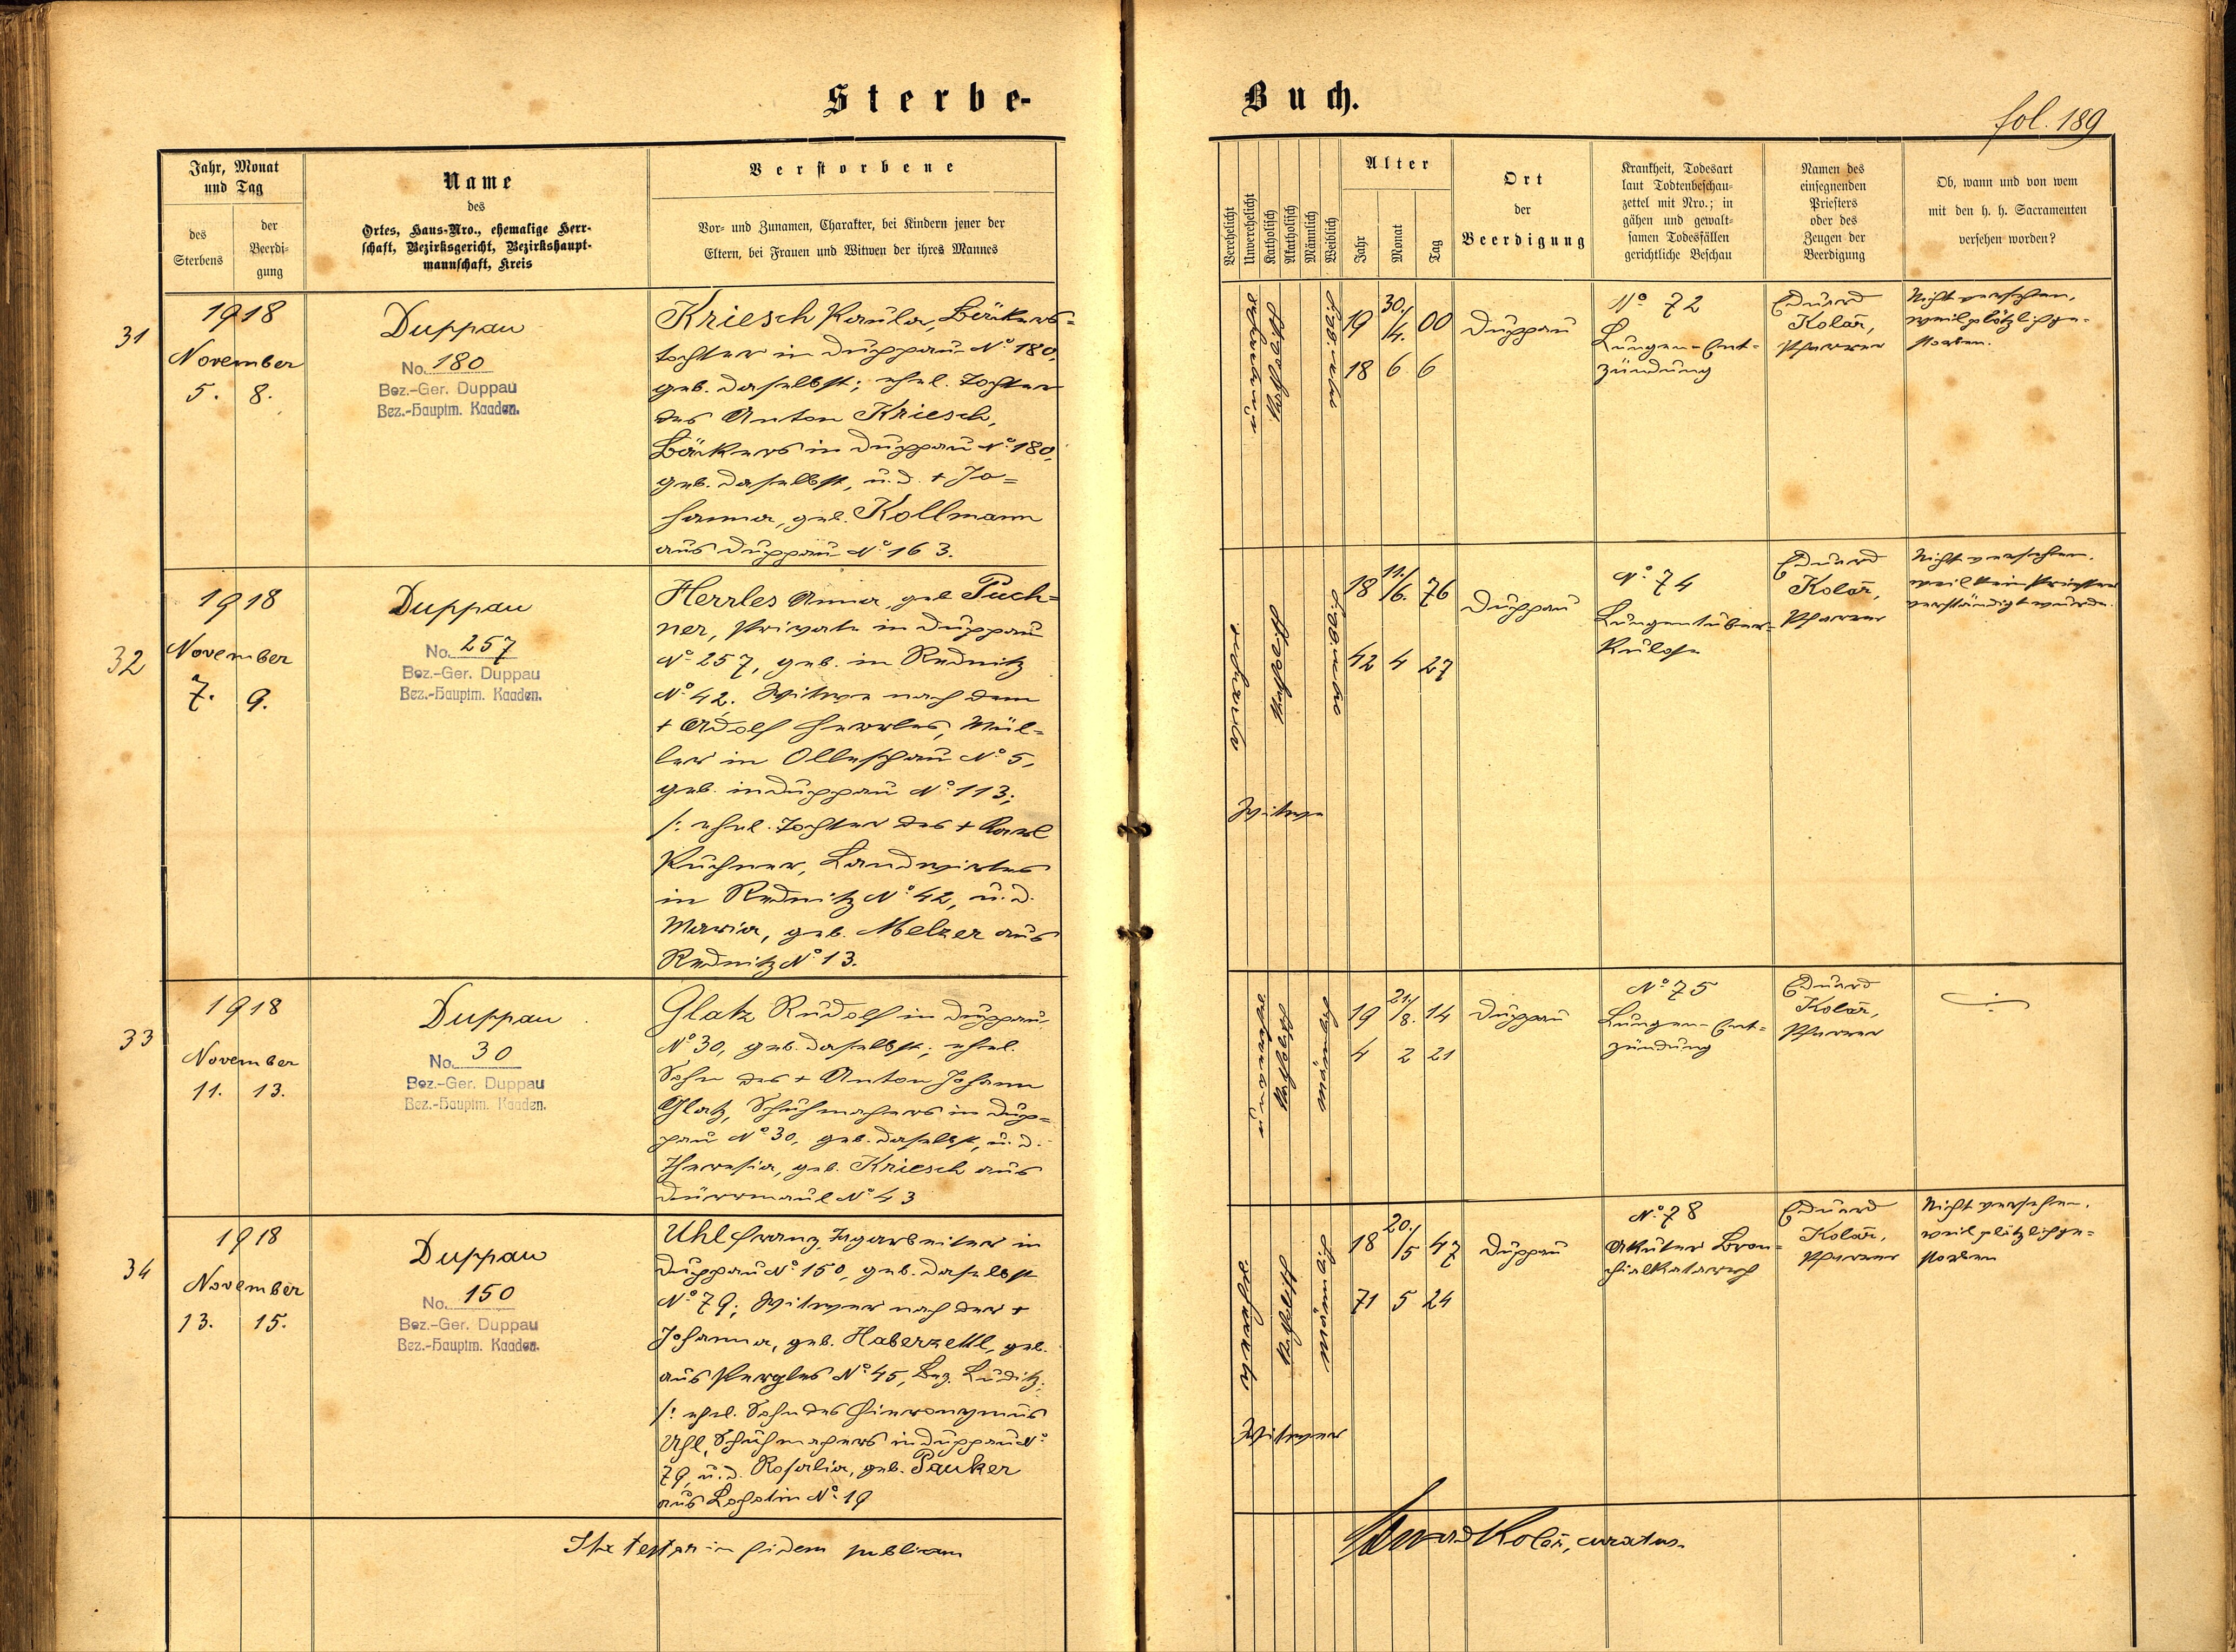 Sterbe-
Buch.
fol. 189
Jahr, Monat
und Tag
des
Sterbens
der
Beerdi-
gung
Name
des
Ortes, Haus-Nro., ehemalige Herr-
schaft, Bezirksgericht, Bezirkshaupt-
mannschaft, Kreis
Verstorbene
Vor- und Zunamen, Charakter, bei Kindern jener der
Eltern, bei Frauen und Witwen der ihres Mannes
Verehelicht
Unverehelicht
Katholisch
Akatholisch
Männlich
Weiblich
Alter
Jahr
Monat
Tag
Ort
der
Beerdigung
Krankheit, Todesart
laut Todtenbeschau-
zettel mit Nro.; in
gähen und gewalt-
samen Todesfällen
gerichtliche Beschau
Namen des
einsegnenden
Priesters
oder des
Zeugen der
Beerdigung
Ob, wann und von wem
mit den h. h. Sacramenten
versehen worden?
31
1918
November
5. 8.
Duppau
No. 180
Bez.-Ger. Duppau
Bez.-Hauptm. Kaaden.
Kriesch Paula, Bäckers=
tochter in Duppau No 180,
geb. daselbst; ehel. Tochter
des Anton Kriesch,
Bäckers in Duppau No 180,
geb. daselbst, u. d. + Jo=
hanna, geb. Kollmann
aus Duppau No 163.
Katholisch
19 30./4. 00
18 6 6
Duppau
No 72
Lungen-Ent=
zündung
Eduard
Kolář,
Pfarrer
Nicht versehen,
weil plötzlich ge-
storben.
32
1918
November
7. 9.
Duppau
No. 257
Bez.-Ger. Duppau
Bez.-Hauptm. Kaaden.
Herrles Anna, geb. Puch=
ner, Private in Duppau
No 257, geb. in Rednitz
No 42. Witwe nach dem
+ Adolf Herrles, Mül=
ler in Olleschau No 5,
geb. in Duppau No 113;
/: ehel. Tochter des + Karl
Puchner, Landwirtes
in Rednitz No 42, u. d.
Maria, geb. Melzer aus
Rednitz No 13.
Katholisch
Witwe
18 11./6. 76
42 4 27
Duppau
No 74
Lungentuber=
kulose
Eduard
Kolář,
Pfarrer
Nicht versehen.
weil kein Priester
verständigt wurde.
33
1918
November
11. 13.
Duppau
No. 30
Bez.-Ger. Duppau
Bez.-Hauptm. Kaaden.
Glatz Rudolf in Duppau,
No 30, geb. daselbst; ehel.
Sohn des + Anton Johann
Glatz, Schuhmachers in Dup=
pau No 30, geb. daselbst, u. d.
Theresia, geb. Kriesch aus
Dürrmaul No 43
Katholisch
19 21./8. 14
4 2 21
Duppau
No 75
Lungen-Ent=
zündung
Eduard
Kolář,
Pfarrer
34
1918
November
13. 15.
Duppau
No. 150
Bez.-Ger. Duppau
Bez.-Hauptm. Kaaden.
Uhl Franz, Tagarbeiter in
Duppau No 150, geb. daselbst
No 79; Witwer nach der +
Johanna, geb. Haberzettl, geb.
aus Pergles No 45, Bez. Luditz;
/: ehel. Sohn des Hieronymus
Uhl, Schuhmachers in Duppau No
79, u. d. Rosalia, geb. Pauker
aus Lochotin No 19
Katholisch
Witwer
18 20./5 47
71 5 24
Duppau
No 78
Akuter Bron=
chialkatarrh
Eduard
Kolář,
Pfarrer
Nicht versehen.
weil plötzlich ge=
storben
Ita testor in fidem publicam
Eduard Kolář, curatus.